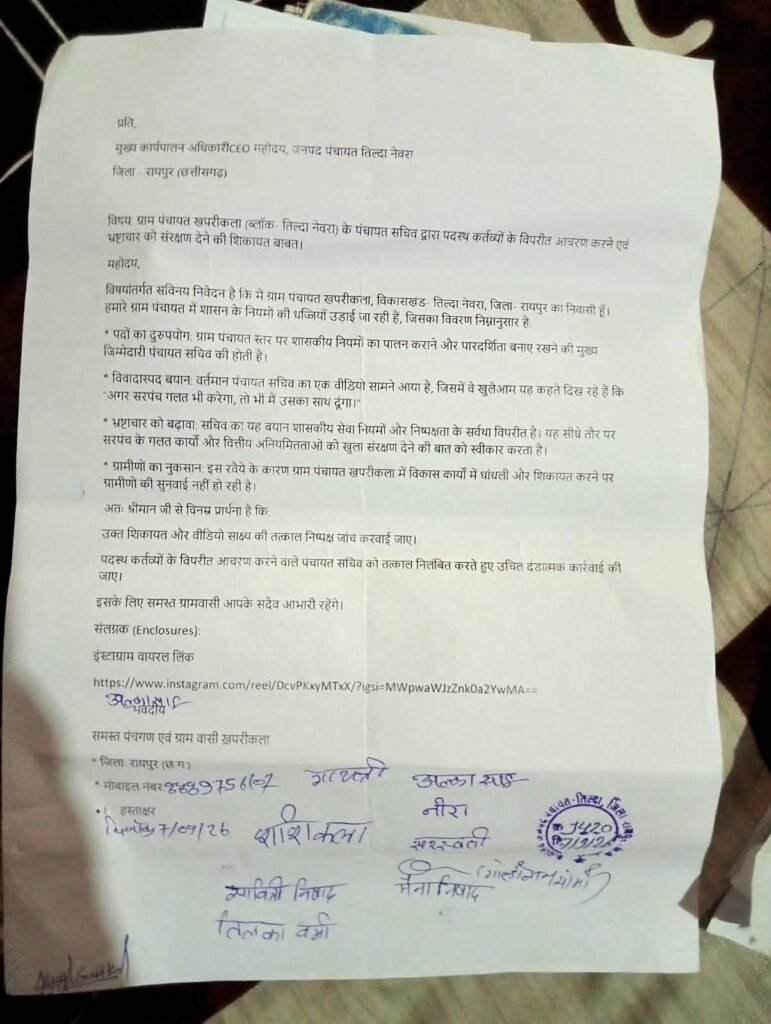 प्रति,
मुख्य कार्यपालन अधिकारीCEO महोदय, जनपद पंचायत तिल्दा नेवरा
जिला - रायपुर (छत्तीसगढ़)
विषय: ग्राम पंचायत खपरीकला (ब्लॉक- तिल्दा नेवरा) के पंचायत सचिव द्वारा पदस्थ कर्तव्यों के विपरीत आचरण करने एवं
भ्रष्टाचार को संरक्षण देने की शिकायत बाबत।
महोदय,
विषयांतर्गत सविनय निवेदन है कि मैं ग्राम पंचायत खपरीकला, विकासखंड- तिल्दा नेवरा, जिला- रायपुर का निवासी हूँ।
हमारे ग्राम पंचायत में शासन के नियमों की धज्जियाँ उड़ाई जा रही हैं, जिसका विवरण निम्नानुसार है:
* पदों का दुरुपयोग: ग्राम पंचायत स्तर पर शासकीय नियमों का पालन कराने और पारदर्शिता बनाए रखने की मुख्य
जिम्मेदारी पंचायत सचिव की होती है।
* विवादास्पद बयान: वर्तमान पंचायत सचिव का एक वीडियो सामने आया है, जिसमें वे खुलेआम यह कहते दिख रहे हैं कि
"अगर सरपंच गलत भी करेगा, तो भी मैं उसका साथ दूंगा।"
* भ्रष्टाचार को बढ़ावा: सचिव का यह बयान शासकीय सेवा नियमों और निष्पक्षता के सर्वथा विपरीत है। यह सीधे तौर पर
सरपंच के गलत कार्यों और वित्तीय अनियमितताओ को खुला संरक्षण देने की बात को स्वीकार करता है।
* ग्रामीणों का नुकसान: इस रवैये के कारण ग्राम पंचायत खपरीकला में विकास कार्यों में धांधली और शिकायत करने पर
ग्रामीणों की सुनवाई नहीं हो रही है।
अतः श्रीमान जी से विनम्र प्रार्थना है कि:
उक्त शिकायत और वीडियो साक्ष्य की तत्काल निष्पक्ष जांच करवाई जाए।
पदस्थ कर्तव्यों के विपरीत आचरण करने वाले पंचायत सचिव को तत्काल निलंबित करते हुए उचित दंडात्मक कार्रवाई की
जाए।
इसके लिए समस्त ग्रामवासी आपके सदैव आभारी रहेंगे।
संलग्नक (Enclosures):
इंस्टाग्राम वायरल लिंक
https://www.instagram.com/reel/DcvPKxyMTxX/?igsi=MWpwaWJzZnk0a2YwMA==
भवदीय
समस्त पंचगण एवं ग्राम वासी खपरीकला
* जिला: रायपुर (छ.ग.)
* मोबाइल नंबर
गायत्री
नीरा
* हस्ताक्षर
दिनांक 7/09/26
शशिकला
सरस्वती
1420
सावित्री निषाद
मैना निषाद
तिलका वर्मा